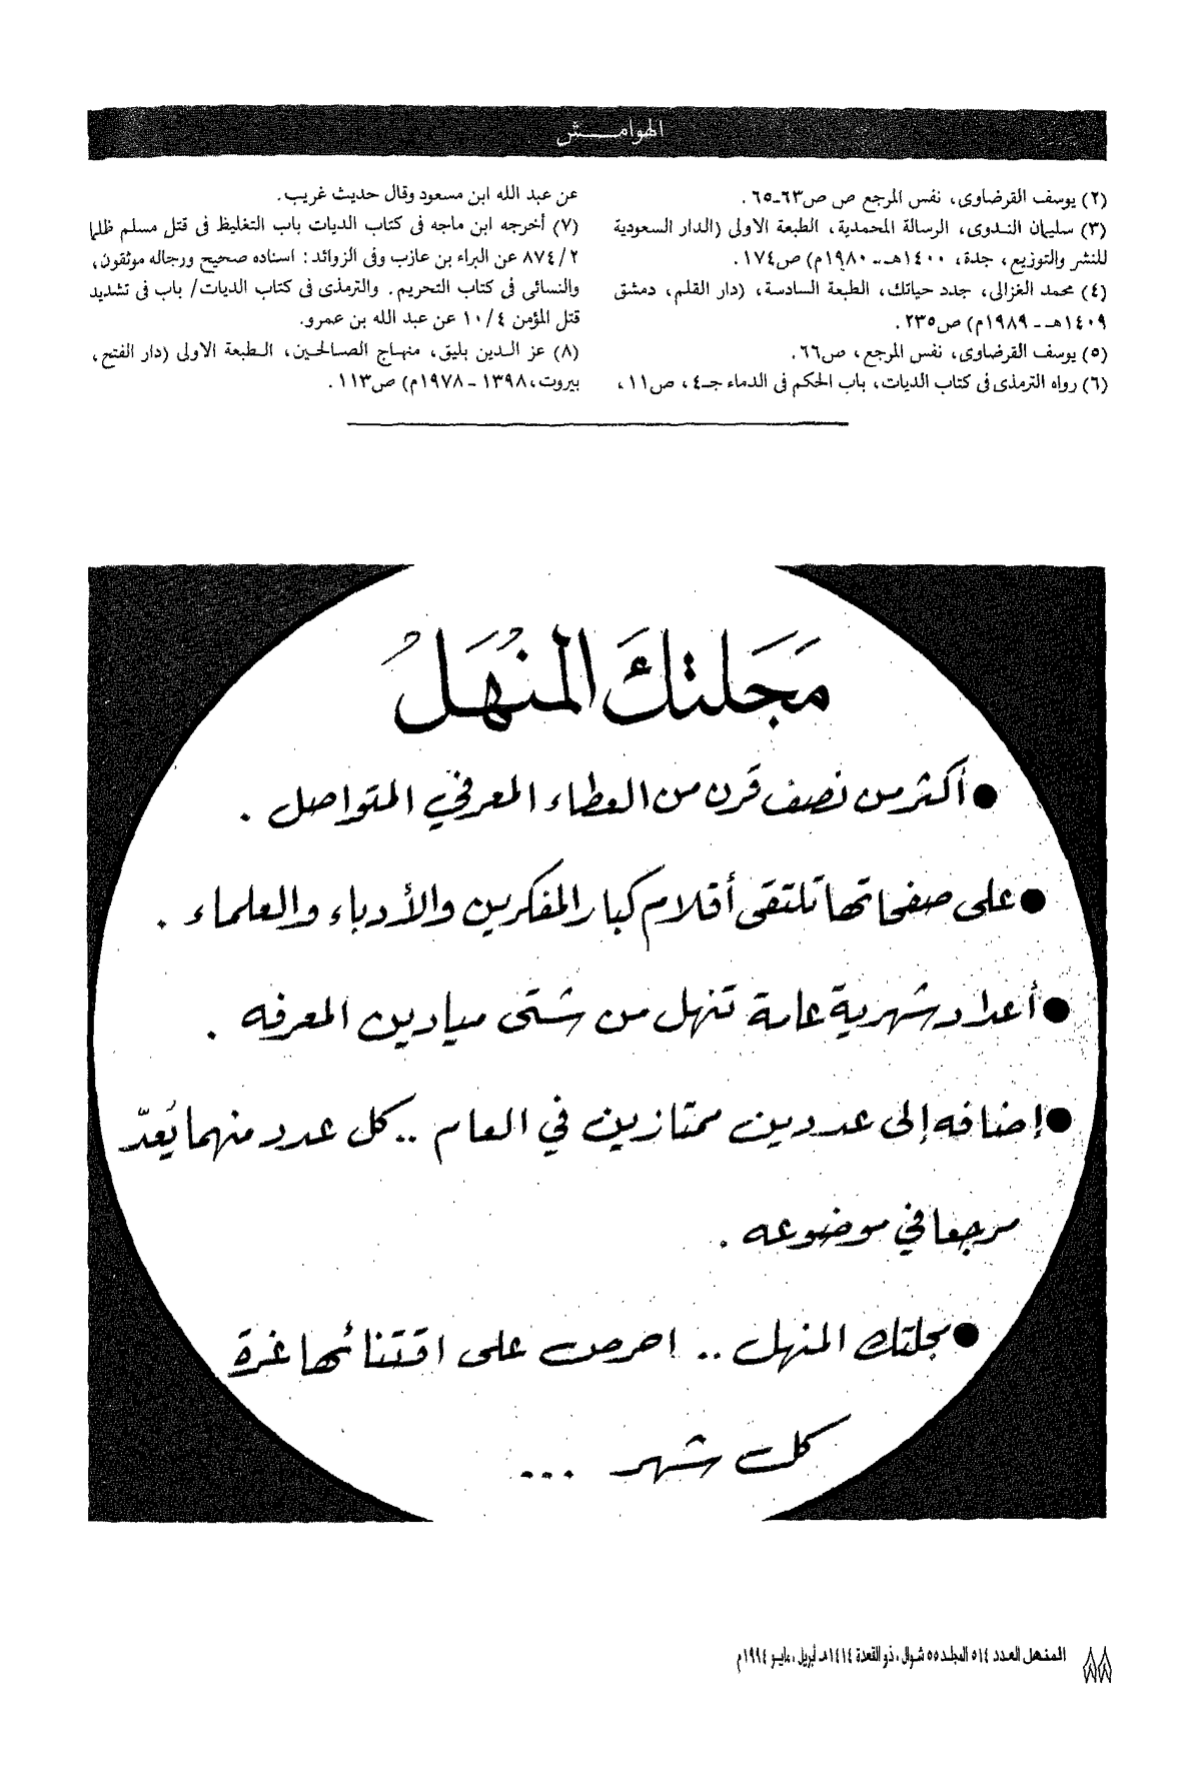 الهوامش
(٢) يوسف القرضاوى، نفس المرجع ص ص٦٣ـ٦٥.
(٣) سليمان الندوى، الرسالة المحمدية، الطبعة الاولى (الدار السعودية
للنشر والتوزيع، جدة، ١٤٠٠هـ ـ ١٩٨٠م) ص١٧٤.
(٤) محمد الغزالى، جدد حياتك، الطبعة السادسة، (دار القلم، دمشق
١٤٠٩هـ ـ ١٩٨٩م) ص٢٣٥.
(٥) يوسف القرضاوى، نفس المرجع، ص٦٦.
(٦) رواه الترمذى فى كتاب الديات، باب الحكم فى الدماء جـ٤، ص١١،
عن عبد الله ابن مسعود وقال حديث غريب.
(٧) أخرجه ابن ماجه فى كتاب الديات باب التغليظ فى قتل مسلم ظلما
٨٧٤/٢ عن البراء بن عازب وفى الزوائد: اسناده صحيح ورجاله موثقون،
والنسائى فى كتاب التحريم. والترمذى فى كتاب الديات/ باب فى تشديد
قتل المؤمن ١٠/٤ عن عبد الله بن عمرو.
(٨) عز الدين بليق، منهاج الصالحين، الطبعة الاولى (دار الفتح،
بيروت، ١٣٩٨ ـ ١٩٧٨م) ص١١٣.
مَجَلتكَ المنُهَلُ
● أكثر من نصف قرن من العطاء المعرفي المتواصل.
● على صفحاتها تلتقى أقلام كبار المفكرين والأدباء والعلماء.
● أعداد شهرية عامة تنهل من شتى ميادين المعرفه.
● إضافه إلى عددين ممتازين في العام .. كل عدد منهما يُعدّ
مرجعا في موضوعه.
● مجلتك المنهل .. احرص على اقتنائها غرة
كل شهر ...
٨٨ المنهل العدد ٥١٤ المجلد ٥٥ شوال، ذو القعدة ١٤١٤هـ أبريل، مايو ١٩٩٤م